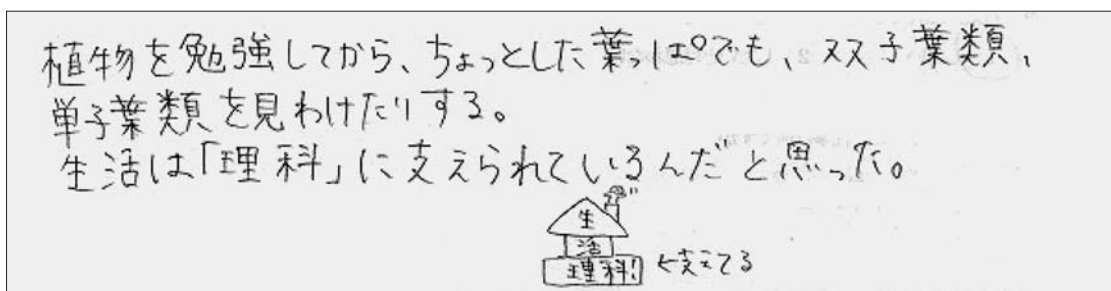 植物を勉強してから、ちょっとした葉っぱでも、双子葉類、
単子葉類を見わけたりする。
生活は「理科」に支えられているんだと思った。
生
活
理科! ←支えてる